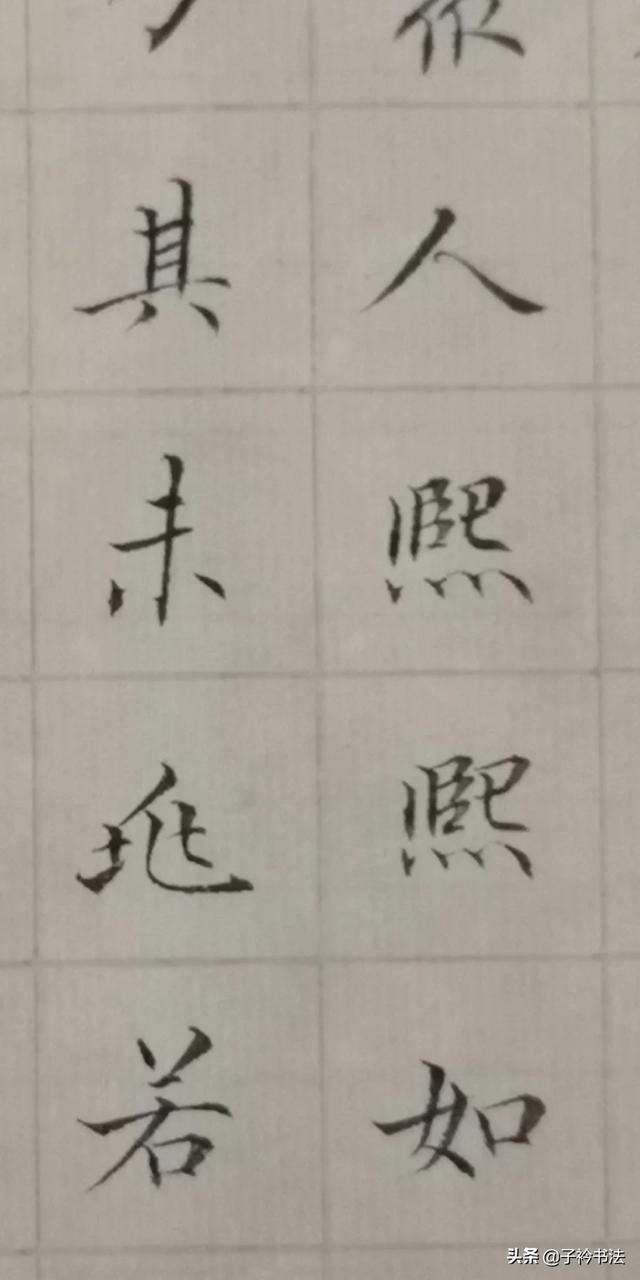 人熙熙如
其未兆若
头条 @子衿书法